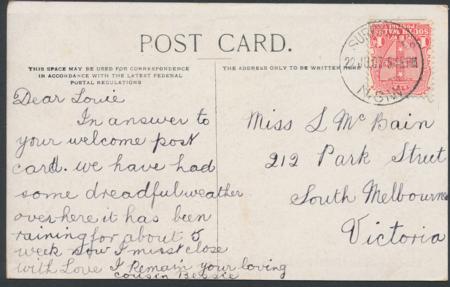 POST CARD.
THIS SPACE MAY BE USED FOR CORRESPONDENCE
IN ACCORDANCE WITH THE LATEST FEDERAL
POSTAL REGULATIONS
THE ADDRESS ONLY TO BE WRITTEN HERE
N.S.W.
Dear Louie
In an answer to
your welcome post
card. we have had
some dreadful weather
over here it has been
raining for about 5
week now I must close
with Love I Remain your loving
cousin Bessie
Miss L McBain
212 Park Street
South Melbourne
Victoria